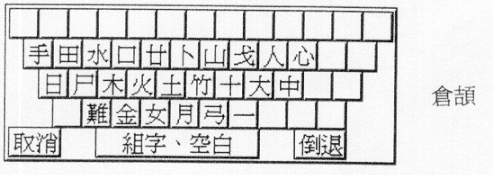 手田水口廿卜山戈人心
日尸木火土竹十大中
難金女月弓一
取消 組字、空白 倒退
倉頡